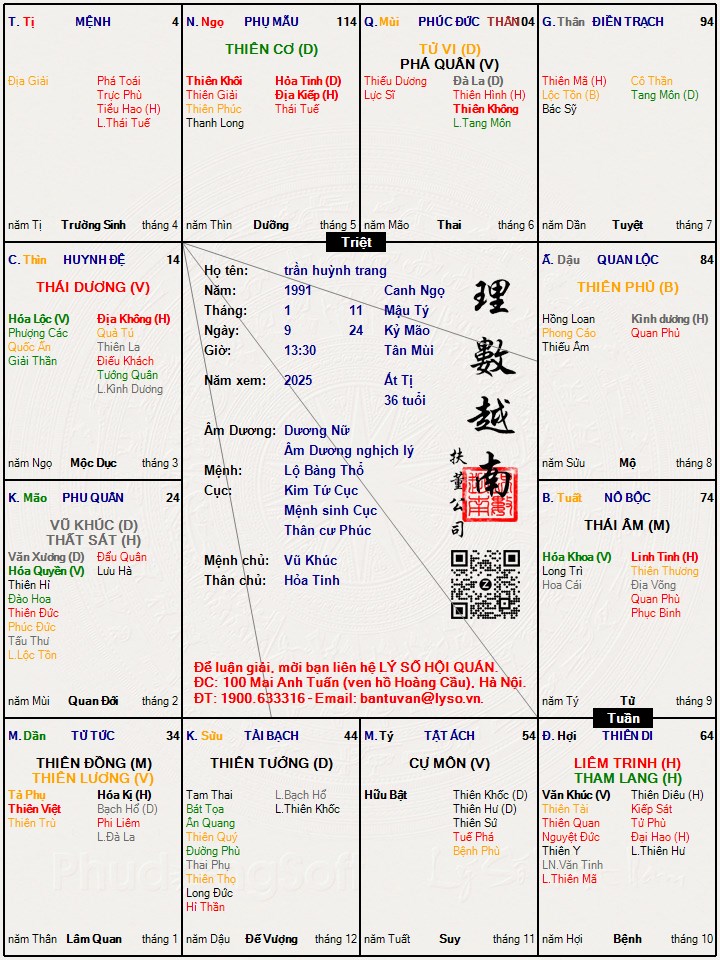 T. Tị MỆNH 4
Địa Giải
Phá Toái
Trực Phù
Tiểu Hao (H)
L.Thái Tuế
năm Tị Trường Sinh tháng 4
N. Ngọ PHỤ MẪU 114
THIÊN CƠ (D)
Thiên Khôi
Thiên Giải
Thiên Phúc
Thanh Long
Hỏa Tinh (D)
Địa Kiếp (H)
Thái Tuế
năm Thìn Dưỡng tháng 5
Q. Mùi PHÚC ĐỨC THÂN 104
TỬ VI (D)
PHÁ QUÂN (V)
Thiếu Dương
Lực Sĩ
Đà La (D)
Thiên Hình (H)
Thiên Không
L.Tang Môn
năm Mão Thai tháng 6
G. Thân ĐIỀN TRẠCH 94
Thiên Mã (H)
Lộc Tồn (B)
Bác Sỹ
Cô Thần
Tang Môn (D)
năm Dần Tuyệt tháng 7
Triệt
C. Thìn HUYNH ĐỆ 14
THÁI DƯƠNG (V)
Hóa Lộc (V)
Phượng Các
Quốc Ấn
Giải Thần
Địa Không (H)
Quả Tú
Thiên La
Điếu Khách
Tướng Quân
L.Kình Dương
năm Ngọ Mộc Dục tháng 3
Họ tên: trần huỳnh trang
Năm: 1991 Canh Ngọ
Tháng: 1 11 Mậu Tý
Ngày: 9 24 Kỷ Mão
Giờ: 13:30 Tân Mùi
Năm xem: 2025 Ất Tị
36 tuổi
Âm Dương: Dương Nữ
Âm Dương nghịch lý
Mệnh: Lộ Bàng Thổ
Cục: Kim Tứ Cục
Mệnh sinh Cục
Thân cư Phúc
Mệnh chủ: Vũ Khúc
Thân chủ: Hỏa Tinh
理數越南
扶董公司
Để luận giải, mời bạn liên hệ LÝ SỐ HỘI QUÁN.
ĐC: 100 Mai Anh Tuấn (ven hồ Hoàng Cầu), Hà Nội.
ĐT: 1900.633316 - Email: bantuvan@lyso.vn.
Ấ. Dậu QUAN LỘC 84
THIÊN PHỦ (B)
Hồng Loan
Phong Cáo
Thiếu Âm
Kình dương (H)
Quan Phủ
năm Sửu Mộ tháng 8
K. Mão PHU QUÂN 24
VŨ KHÚC (D)
THẤT SÁT (H)
Văn Xương (D)
Hóa Quyền (V)
Thiên Hỉ
Đào Hoa
Thiên Đức
Phúc Đức
Tấu Thư
L.Lộc Tồn
Đẩu Quân
Lưu Hà
năm Mùi Quan Đới tháng 2
B. Tuất NÔ BỘC 74
THÁI ÂM (M)
Hóa Khoa (V)
Long Trì
Hoa Cái
Linh Tinh (H)
Thiên Thương
Địa Võng
Quan Phù
Phục Binh
năm Tý Tử tháng 9
Tuần
M. Dần TỬ TỨC 34
THIÊN ĐỒNG (M)
THIÊN LƯƠNG (V)
Tả Phụ
Thiên Việt
Thiên Trù
Hóa Kị (H)
Bạch Hổ (D)
Phi Liêm
L.Đà La
năm Thân Lâm Quan tháng 1
K. Sửu TÀI BẠCH 44
THIÊN TƯỚNG (D)
Tam Thai
Bát Tọa
Ân Quang
Thiên Quý
Đường Phù
Thai Phụ
Thiên Thọ
Long Đức
Hỉ Thần
L.Bạch Hổ
L.Thiên Khốc
năm Dậu Đế Vượng tháng 12
M. Tý TẬT ÁCH 54
CỰ MÔN (V)
Hữu Bật
Thiên Khốc (D)
Thiên Hư (D)
Thiên Sứ
Tuế Phá
Bệnh Phù
năm Tuất Suy tháng 11
Đ. Hợi THIÊN DI 64
LIÊM TRINH (H)
THAM LANG (H)
Văn Khúc (V)
Thiên Tài
Thiên Quan
Nguyệt Đức
Thiên Y
LN.Văn Tinh
L.Thiên Mã
Thiên Diêu (H)
Kiếp Sát
Tử Phù
Đại Hao (H)
L.Thiên Hư
năm Hợi Bệnh tháng 10